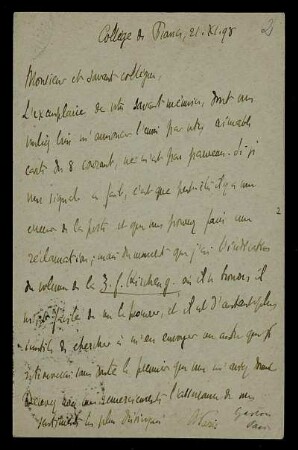 Collège de France, 21. XI. 98
2
Monsieur et savant collègue,
L'exemplaire de votre savant mémoire, dont vous
voulez bien m'annoncer l'envoi par votre aimable
carte du 8 courant, ne m'est pas parvenu. Si je
vous signale ce fait, c'est que peut-être il y a une
erreur de la poste et que vous pouvez faire une
réclamation; mais du moment que j'ai l'indication
du volume de la Z. f. Kircheng. où il se trouve, il
m'est facile de me le procurer, et il est d'autant plus
inutile de chercher à m'en envoyer un autre que je
retrouverai sans doute le premier que vous m'avez
Recevez avec mes remerciements l'assurance de mes
sentiments les plus distingués
G Paris
Gaston
Paris